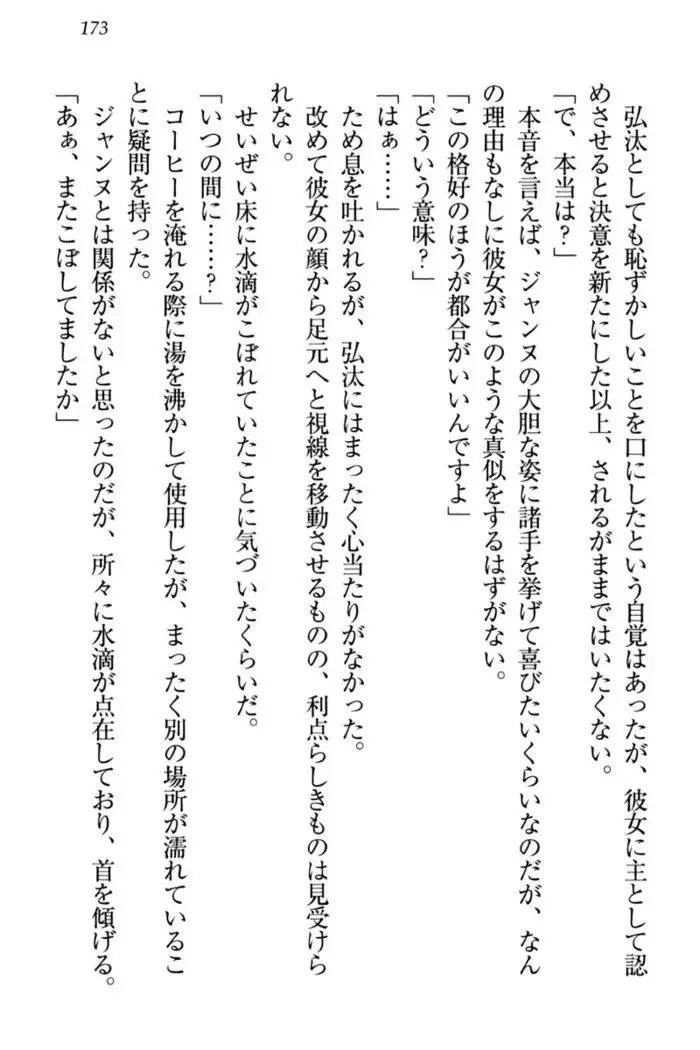 173
弘汰としても恥ずかしいことを口にしたという自覚はあったが、彼女に主として認
めさせると決意を新たにした以上、されるがままではいたくない。
「で、本当は?」
本音を言えば、ジャンヌの大胆な姿に諸手を挙げて喜びたいくらいなのだが、なん
の理由もなしに彼女がこのような真似をするはずがない。
「この格好のほうが都合がいいんですよ」
「どういう意味?」
「はぁ……」
ため息を吐かれるが、弘汰にはまったく心当たりがなかった。
改めて彼女の顔から足元へと視線を移動させるものの、利点らしきものは見受けら
れない。
せいぜい床に水滴がこぼれていたことに気づいたくらいだ。
「いつの間に……?」
コーヒーを淹れる際に湯を沸かして使用したが、まったく別の場所が濡れているこ
とに疑問を持った。
ジャンヌとは関係がないと思ったのだが、所々に水滴が点在しており、首を傾げる。
「あぁ、またこぼしてましたか」